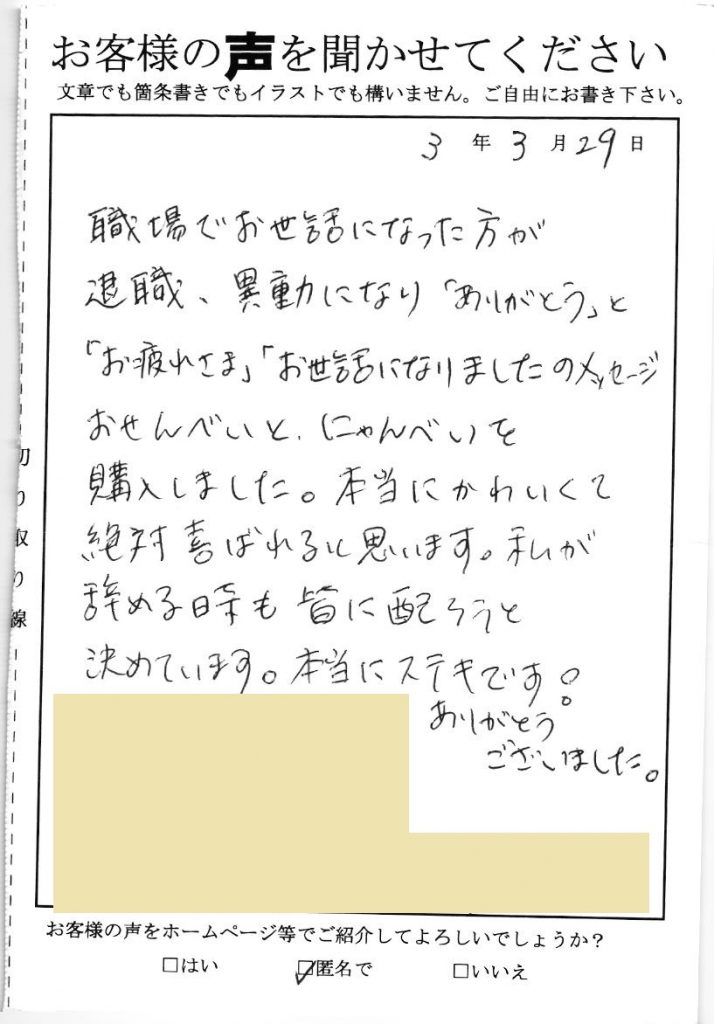 お客様の声を聞かせてください
文章でも箇条書きでもイラストでも構いません。ご自由にお書き下さい。
3 年 3 月 29 日
職場でお世話になった方が
退職、異動になり「ありがとう」と
「お疲れさま」「お世話になりましたのメッセージ
おせんべいと、にゃんべいを
購入しました。本当にかわいくて
絶対喜ばれると思います。私が
辞める時も皆に配ろうと
決めています。本当にステキです!
ありがとう
ございました。
切り取り線
お客様の声をホームページ等でご紹介してよろしいでしょうか?
□はい ☑匿名で □いいえ